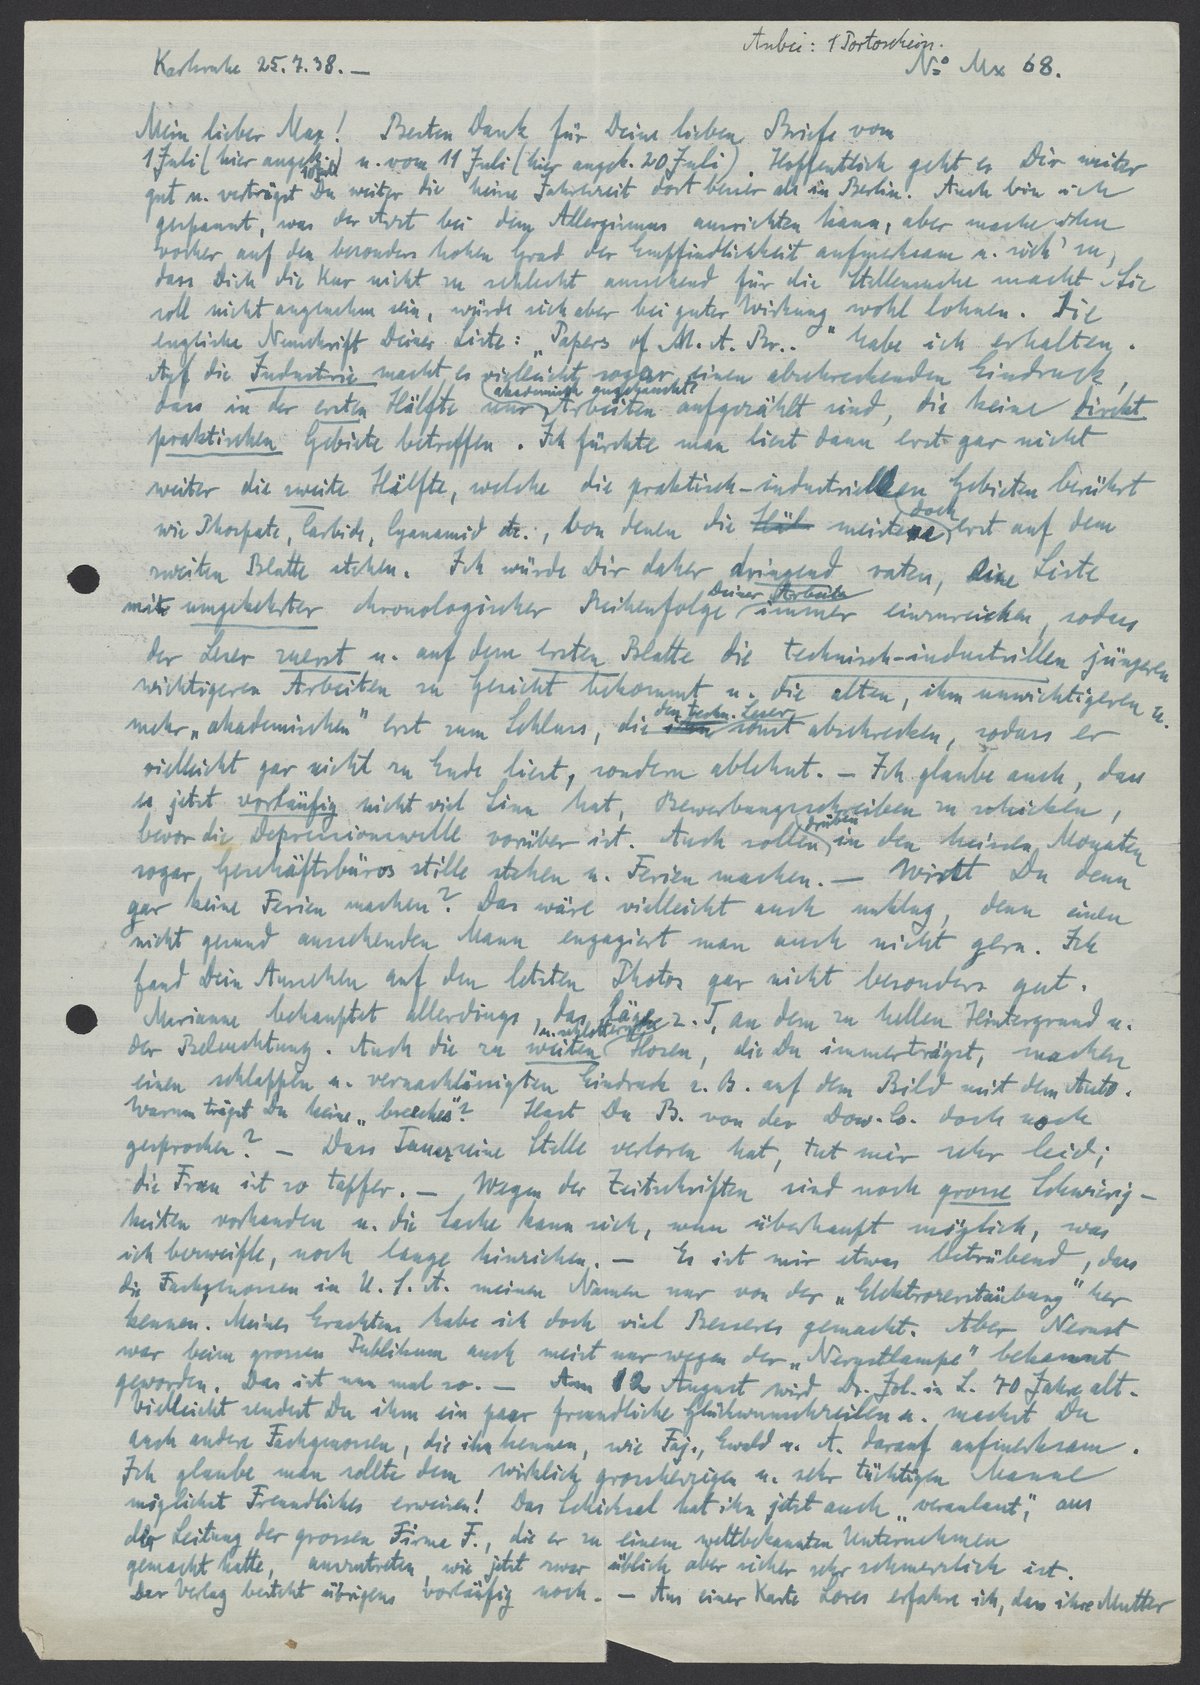 Anbei: 1 Portoschein.
Karlsruhe 25.7.38.—
No Mx 68.
Mein lieber Max! Besten Dank für Deine lieben Briefe vom
1 Juli (hier angek. 10 Juli) u. vom 11 Juli (hier angek. 20 Juli). Hoffentlich geht es Dir weiter
gut u. verträgst Du weiter die heisse Jahreszeit dort besser als in Berlin. Auch bin ich
gespannt, was der Arzt bei dem Allergismus ausrichten kann, aber mache ihn
vorher auf den besonders hohen Grad der Empfindlichkeit aufmerksam u. sieh' zu,
dass Dich die Kur nicht zu schlecht aussehend für die Stellensuche macht. Sie
soll nicht angenehm sein, würde sich aber bei guter Wirkung wohl lohnen. Die
englische Neuschrift Deiner Liste: „Papers of M. A. Br.." habe ich erhalten.
Auf die Industrie macht es vielleicht sogar einen abschreckenden Eindruck,
dass in der ersten Hälfte nur akademisch angehauchte Arbeiten aufgezählt sind, die keine direkt
praktischen Gebiete betreffen. Ich fürchte man liest dann erst gar nicht
weiter die zweite Hälfte, welche die praktisch-industriellen Gebieten berührt
wie Phospate, Carbide, Cyanamid etc., von denen die meisten doch erst auf dem
zweiten Blatte stehen. Ich würde Dir daher dringend raten, eine Liste
mit umgekehrter chronologischer Reihenfolge Deiner Arbeiten immer einzureichen, sodass
der Leser zuerst u. auf dem ersten Blatte die technisch-industriellen jüngeren
wichtigeren Arbeiten zu Gesicht bekommt u. die alten, ihm unwichtigeren u.
mehr „akademischen" erst zum Schluss, die den techn. Leser sonst abschrecken, sodass er
vielleicht gar nicht zu Ende liest, sondern ablehnt. — Ich glaube auch, dass
es jetzt vorläufig nicht viel Sinn hat, Bewerbungsschreiben zu schicken,
bevor die Depressionswelle vorüber ist. Auch sollen drüben in den heissen Monaten
sogar Geschäftsbüros stille stehen u. Ferien machen. — Wirst Du denn
gar keine Ferien machen? Das wäre vielleicht auch unklug, denn einen
nicht gesund aussehenden Mann engagiert man auch nicht gern. Ich
fand Dein Aussehen auf den letzten Photos gar nicht besonders gut.
Marianne behauptet allerdings, das läge z. T. an dem zu hellen Hintergrund u.
der Beleuchtung. Auch die zu weiten u. schlotternden Hosen, die Du immer trägst, machen
einen schlappen u. vernachlässigten Eindruck z. B. auf dem Bild mit dem Auto.
Warum trägst Du keine „breeches"? Hast Du B. von der Dow. Co. doch noch
gesprochen? — Dass seine Stelle verloren hat, tut mir sehr leid;
die Frau ist so tapfer. — Wegen der Zeitschriften sind noch grosse Schwierig-
keiten vorhanden u. die Sache kann sich, wenn überhaupt möglich, was
ich bezweifle, noch lange hinziehen. — Es ist mir etwas betrübend, dass
die Fachgenossen in U. S. A. meinen Namen nur von der „Elektrozerstäubung" her
kennen. Meines Erachtens habe ich doch viel Besseres gemacht. Aber Nernst
war beim grossen Publikum auch meist nur wegen der „Nernstlampe" bekannt
geworden. Das ist nun mal so. — Am 12 August wird Dr. Jol. in L. 70 Jahre alt.
Vielleicht sendest Du ihm ein paar freundliche Glückwunschzeilen u. machst Du
auch andere Fachgenossen, die ihn kennen, wie Faj., Ewald u. A. darauf aufmerksam.
Ich glaube man sollte dem wirklich grossherzigen u. sehr tüchtigen Manne
möglichst Freundliches erweisen! Das Schicksal hat ihn jetzt auch „veranlasst", aus
der Leitung der grossen Firma F., die er zu einem weltbekannten Unternehmen
gemacht hatte, auszutreten, wie jetzt zwar üblich aber sicher sehr schmerzlich ist.
Der Verlag besteht übrigens vorläufig noch. — Aus einer Karte Lores erfahre ich, dass ihre Mutter